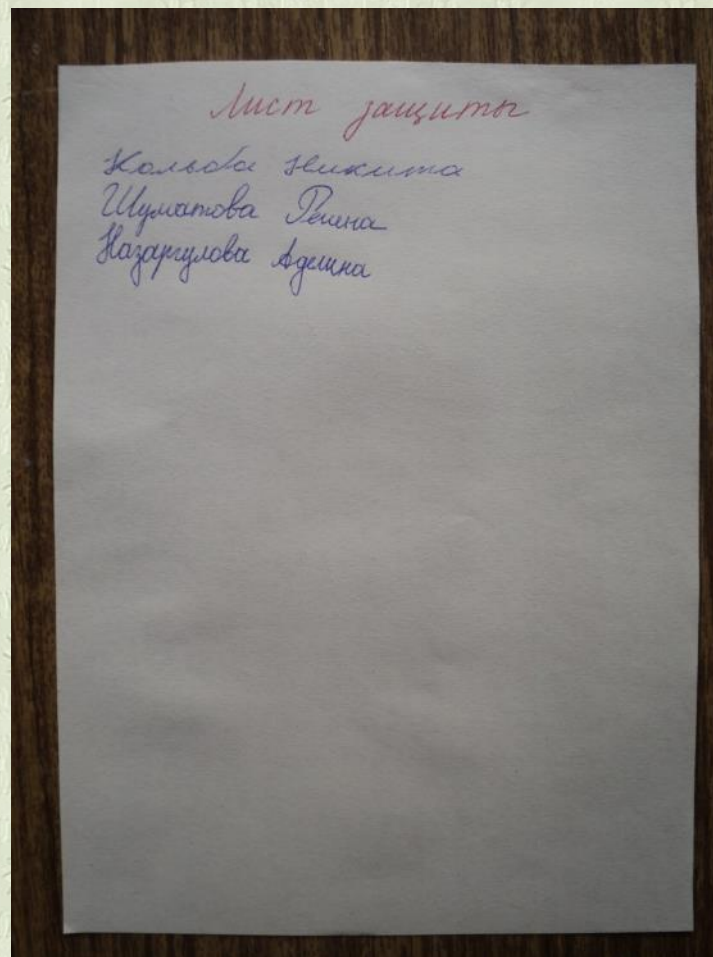 Лист защиты
Кольба Никита
Шуматова Регина
Назаргулова Аделина